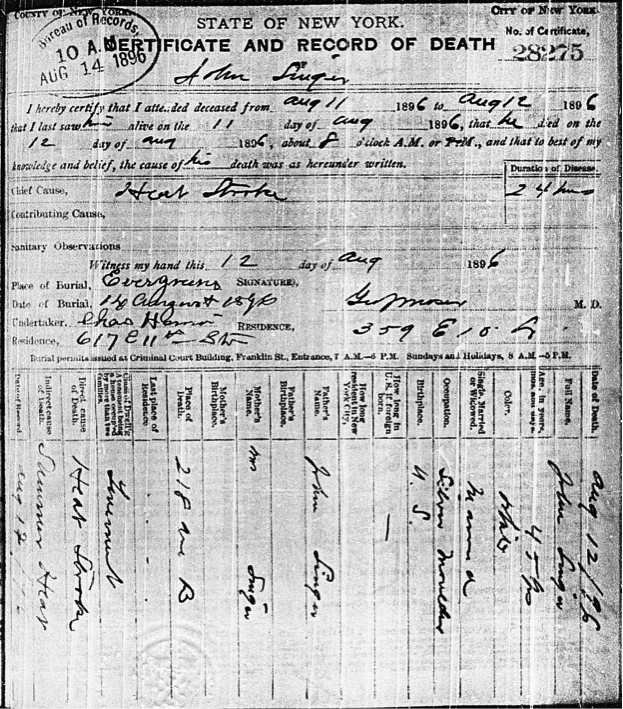 COUNTY OF NEW YORK.
CITY OF NEW YORK.
STATE OF NEW YORK.
No. of Certificate,
Bureau of Records,
10 A.M
AUG 14 1896
CERTIFICATE AND RECORD OF DEATH
28275
John Singer
I hereby certify that I attended deceased from Aug 11 1896 to Aug 12 1896
that I last saw him alive on the 11 day of Aug 1896, that he died on the
12 day of Aug 1896, about 8 o'clock A.M. or P.M., and that to best of my
knowledge and belief, the cause of his death was as hereunder written.
Duration of Disease.
Chief Cause, Heat Stroke 24 hrs
Contributing Cause,
Sanitary Observations
Witness my hand this 12 day of Aug 1896
Place of Burial, Evergreens SIGNATURE,
Date of Burial, 14 August 1896 M. D.
Undertaker, Chas RESIDENCE, 359 E 10
Residence, 617 E 11th St
Burial permits issued at Criminal Court Building, Franklin St., Entrance, 7 A.M.—6 P.M. Sundays and Holidays, 8 A.M.—5 P.M.
Date of Death. Aug 12/96
Full Name. John Singer
Age, in years, mos. and days. 45
Color. White
Single, Married or Widowed. Married
Occupation. Silver Moulder
Birthplace. U. S.
How long in U.S. if foreign born. —
How long resident in New York City.
Father's Name. John Singer
Father's Birthplace.
Mother's Name. Singer
Mother's Birthplace.
Place of Death. 218 Ave B
Last place of Residence
Class of Dwell'g A tenement being a house occupied by more than two families. Tenement
Direct cause of Death. Heat Stroke
Indirect cause of Death. Summer Heat
Date of Record